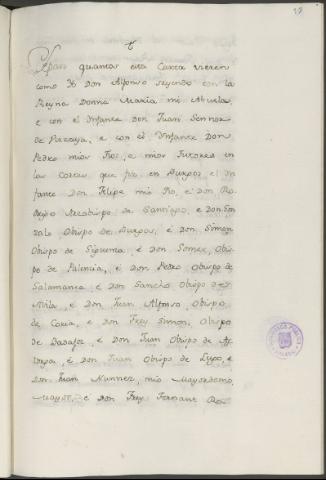 Sepan quantos esta Carta vieren
como Yo Don Alfonso seyendo con la
Reyna Donna Maria mi Abuela,
e con el Infante Don Juan Sennor
de Vizcaya, e con el Infante Don
Pedro mios Tios, e mios Tutores en
las Cortes que fiz en Burgos, e el In
fante Don Felipe mio Tio, e Don Ro
drigo Arzobispo de Santiago, e Don Gon
zalo Obispo de Burgos, é Don Simon
Obispo de Siguenza, é Don Gomez, Obis
po de Palencia, é Don Pedro Obispo de
Salamanca, é Don Sancho Obispo de
Avila, é Don Juan Alfonso Obispo
de Coria, e Don Frey Simon, Obispo
de Badajoz, é Don Juan Obispo de As
torga, é Don Juan Obispo de Lugo, e
Don Juan Nunnez, mio Mayordomo
Mayor, é Don Frey Fernant Ro